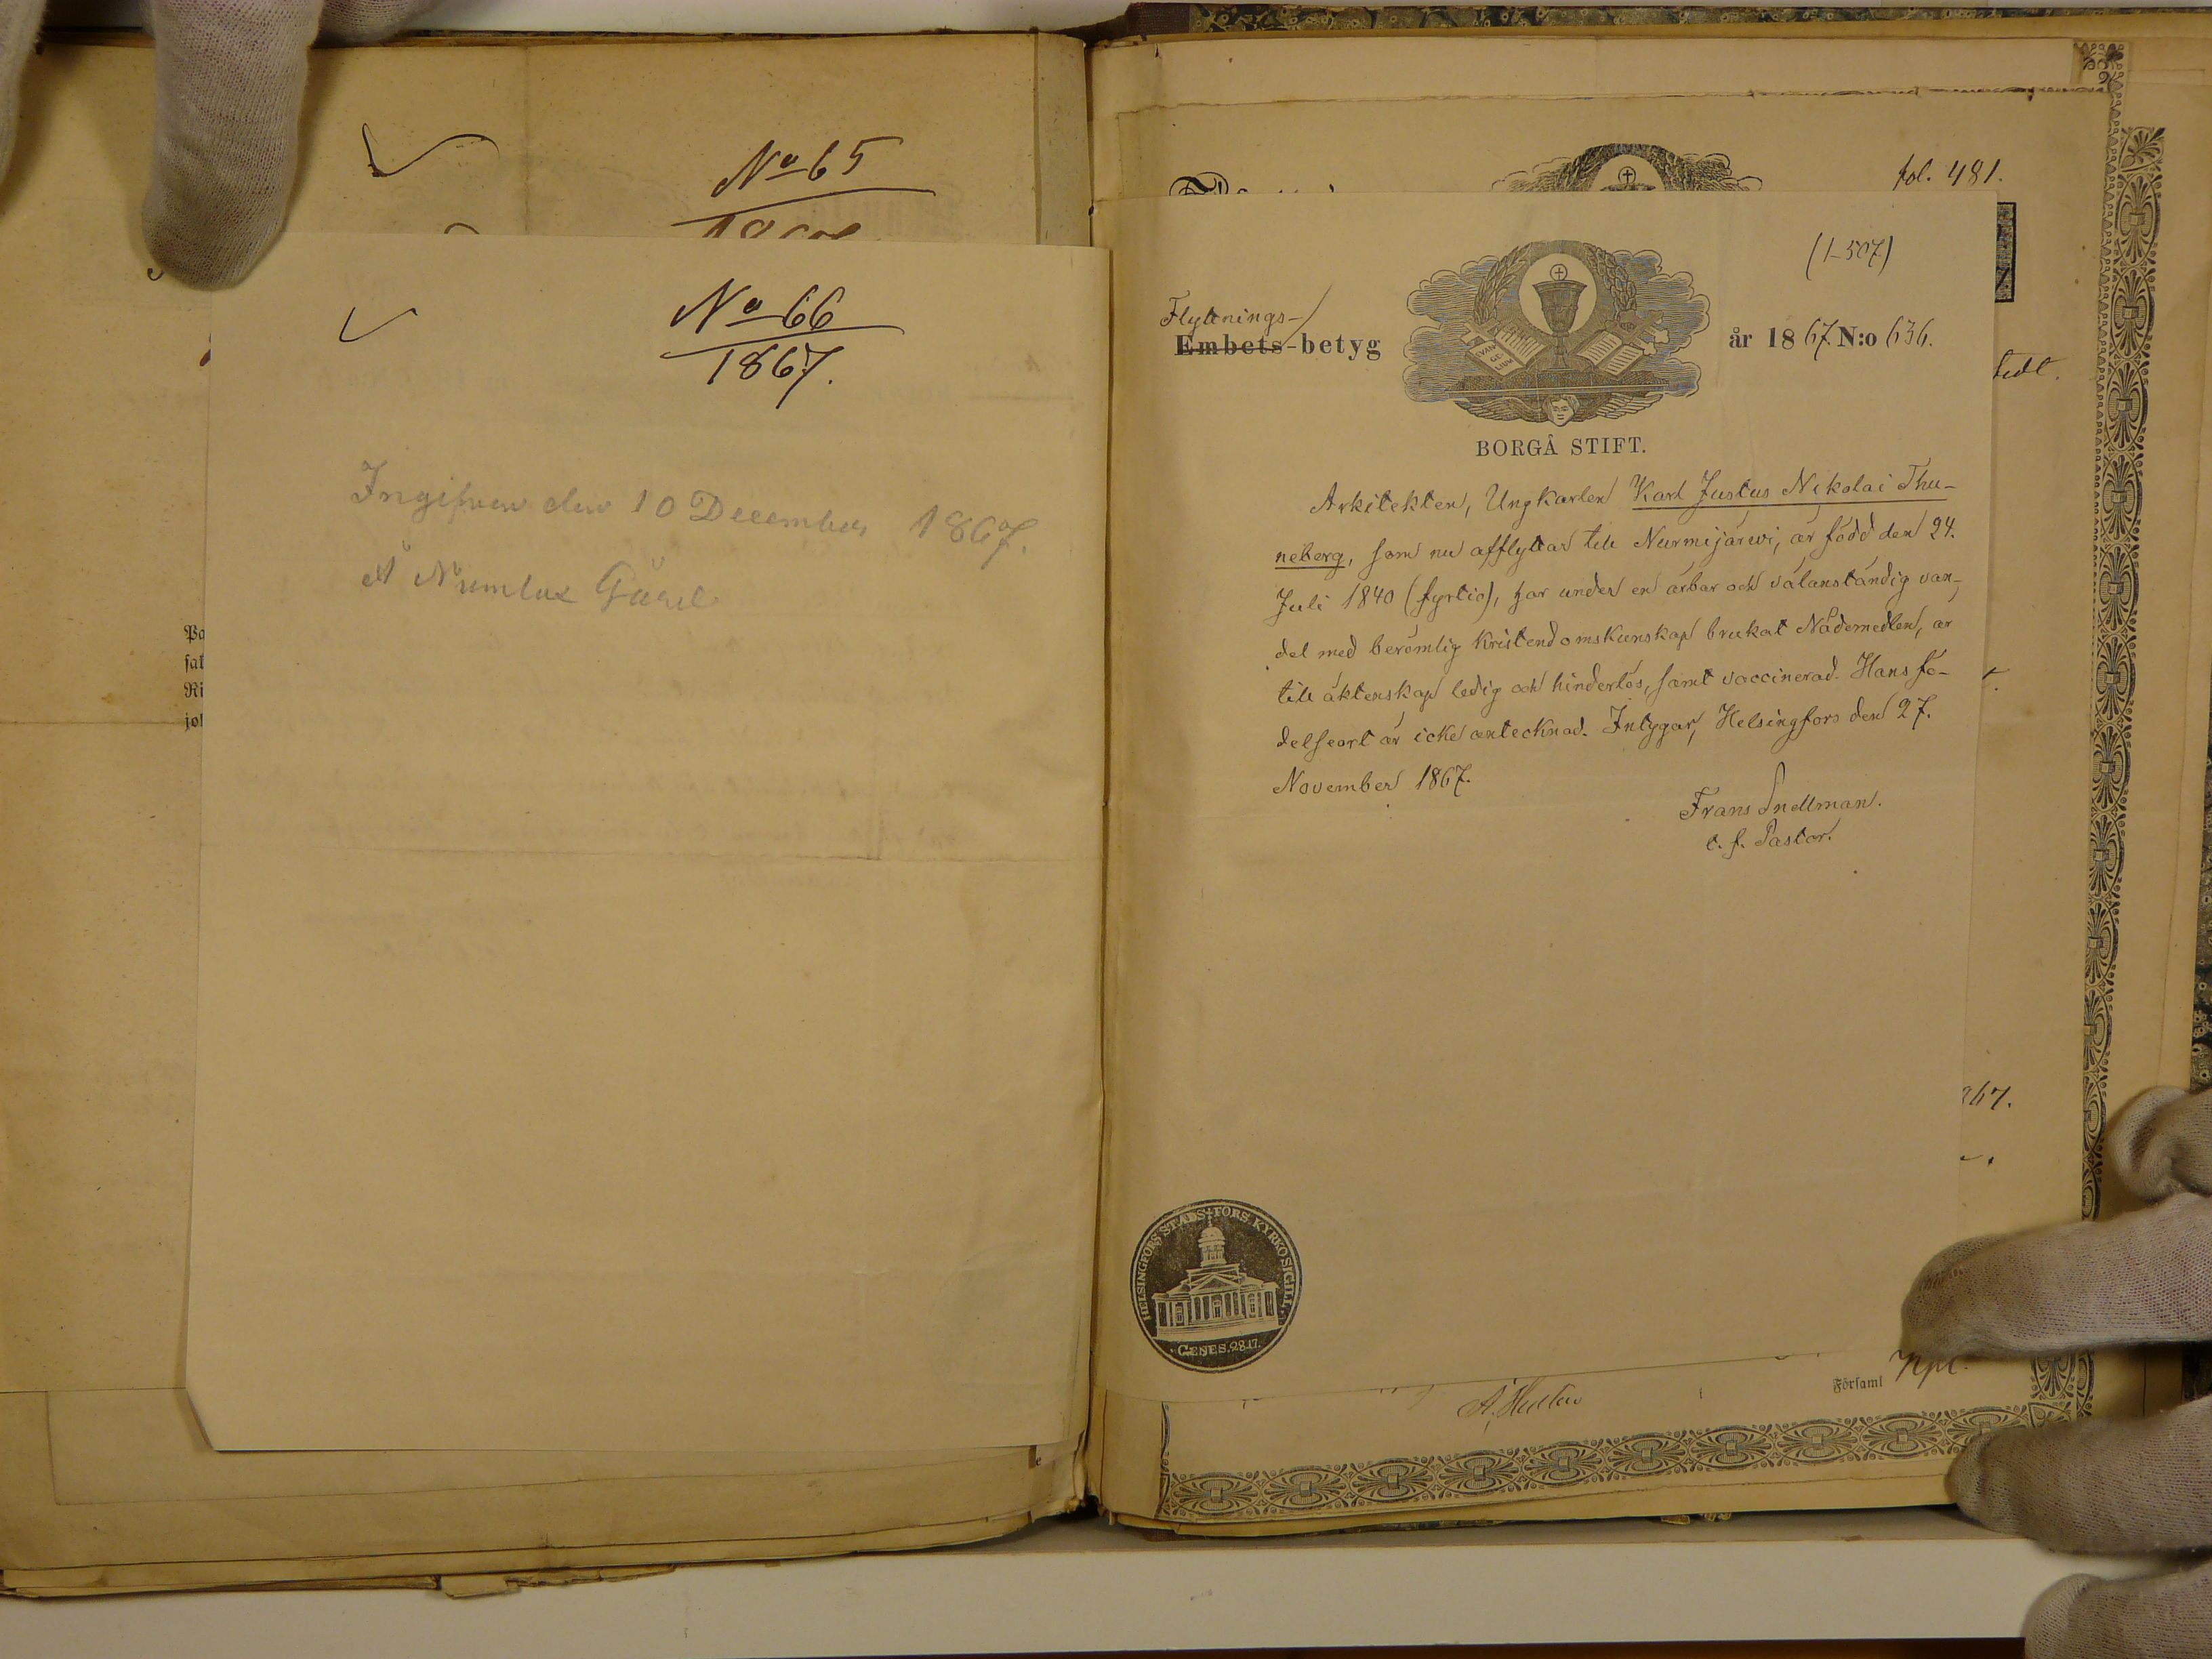 No 65
No 66
1867.
Ingifven den 10 December 1867.
Å Numlax Gård.
Pa
sat
Ri
jol
fol. 481.
(1-507)
Flyttnings-
Embets-betyg
år 1867. N:o 636.
EVAN
GE
LIUM
BORGÅ STIFT.
Arkitekten, Ungkarlen Karl Justus Nikolai Thu-
neberg, som nu afflyttar till Nurmijärwi, är född den 24.
Juli 1840 (fyrtio), har under en ärbar och välanständig van-
del med berömlig kristendomskunskap brukat Nådemedlen, är
till äktenskap ledig och hinderlös, samt vaccinerad. Hans fö-
delseort är icke antecknad. Intygar, Helsingfors den 27.
November 1867.
Frans Snellman.
t. f. Pastor.
tedt.
867.
HELSINGFORS STADS FÖRS. KYRKO SIGILL.
GENES. 28.17.
Församl